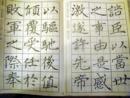 之事由是感
激遂許先帝
以驅馳後值
傾覆受任於
敗軍之際奉